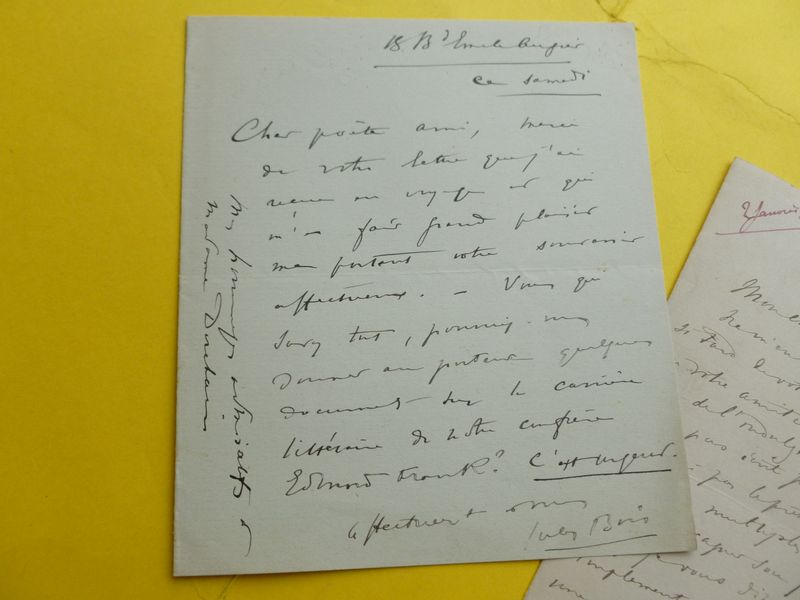 18 Bd Emile Augier
ce samedi
Cher poète ami, merci
de votre lettre que j'ai
reçue en voyage et qui
m'a fait grand plaisir
me portant votre souvenir
affectueux. – Vous qui
savez tout, pourriez-vous
donner au porteur quelques
documents sur la carrière
littéraire de notre confrère
Edmond Frank? C'est urgent.
affectueust à vous
Jules Bois
Mes hommages à
Madame Dorchain
2 Janvier
votre amitié
de l'indulg
pas
multiples
vous di
simplement
une